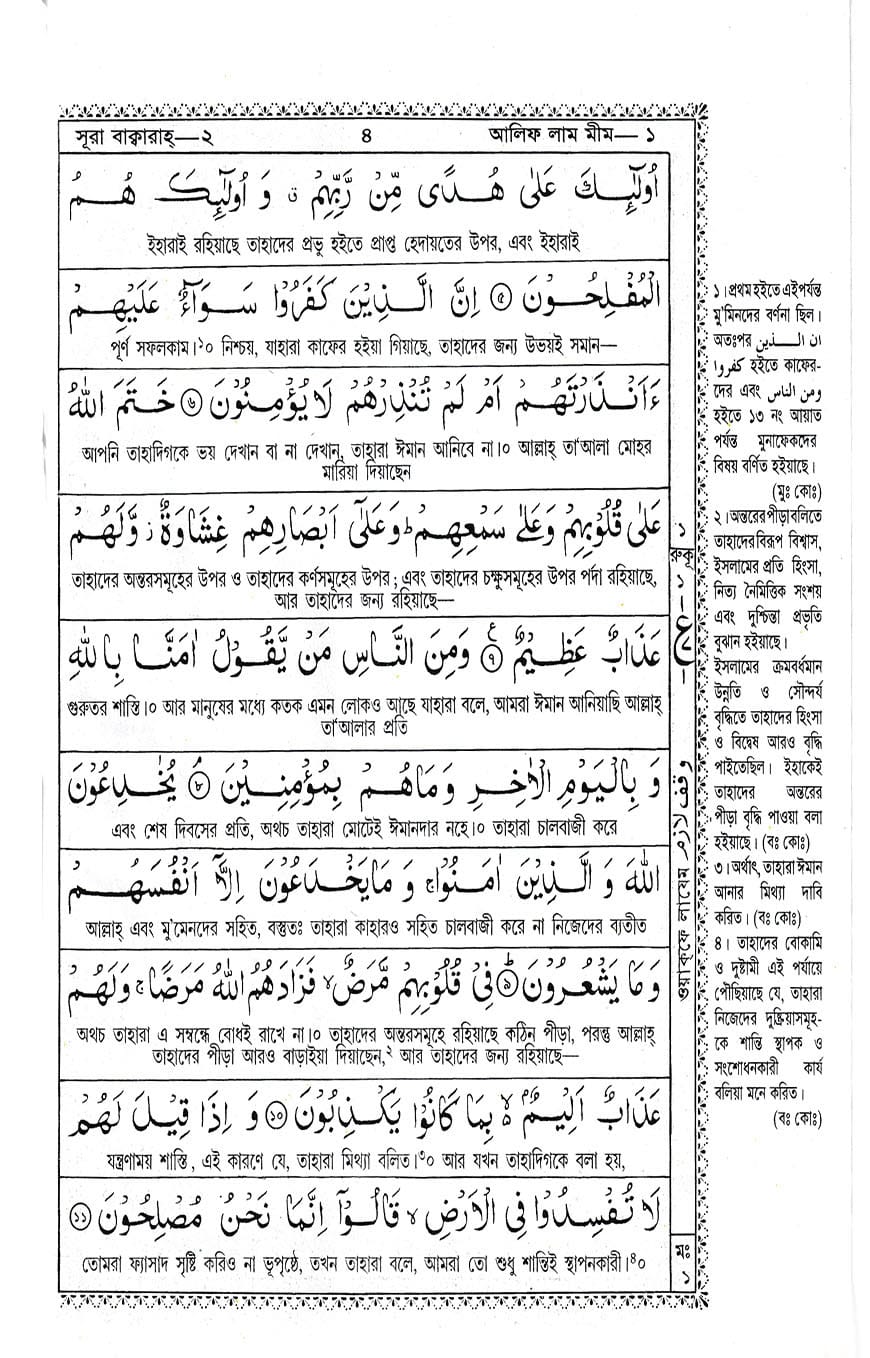 সূরা বাক্বারাহ্—২ ৪ আলিফ লাম মীম— ১
اُولٰٓئِكَ عَلٰى هُدًى مِّنْ رَّبِّهِمْ ۙ وَ اُولٰٓئِكَ هُمُ
ইহারাই রহিয়াছে তাহাদের প্রভু হইতে প্রাপ্ত হেদায়তের উপর, এবং ইহারাই
الْمُفْلِحُوْنَ ۝٥ اِنَّ الَّذِيْنَ كَفَرُوْا سَوَآءٌ عَلَيْهِمْ
পূর্ণ সফলকাম।১০ নিশ্চয়, যাহারা কাফের হইয়া গিয়াছে, তাহাদের জন্য উভয়ই সমান—
ءَاَنْذَرْتَهُمْ اَمْ لَمْ تُنْذِرْهُمْ لَا يُؤْمِنُوْنَ ۝٦ خَتَمَ اللّٰهُ
আপনি তাহাদিগকে ভয় দেখান বা না দেখান, তাহারা ঈমান আনিবে না।০ আল্লাহ্ তা'আলা মোহর
মারিয়া দিয়াছেন
عَلٰى قُلُوْبِهِمْ وَعَلٰى سَمْعِهِمْ ؕ وَعَلٰٓى اَبْصَارِهِمْ غِشَاوَةٌ ؗ وَّلَهُمْ
তাহাদের অন্তরসমূহের উপর ও তাহাদের কর্ণসমূহের উপর ; এবং তাহাদের চক্ষুসমূহের উপর পর্দা রহিয়াছে,
আর তাহাদের জন্য রহিয়াছে—
عَذَابٌ عَظِيْمٌ ۝٧ وَمِنَ النَّاسِ مَنْ يَّقُوْلُ اٰمَنَّا بِاللّٰهِ
গুরুতর শাস্তি।০ আর মানুষের মধ্যে কতক এমন লোকও আছে যাহারা বলে, আমরা ঈমান আনিয়াছি আল্লাহ্
তা'আলার প্রতি
وَ بِالْيَوْمِ الْاٰخِرِ وَمَاهُمْ بِمُؤْمِنِيْنَ ۝٨ يُخٰدِعُوْنَ
এবং শেষ দিবসের প্রতি, অথচ তাহারা মোটেই ঈমানদার নহে।০ তাহারা চালবাজী করে
اللّٰهَ وَ الَّذِيْنَ اٰمَنُوْا ۚ وَ مَا يَخْدَعُوْنَ اِلَّآ اَنْفُسَهُمْ
আল্লাহ্ এবং মু'মেনদের সহিত, বস্তুতঃ তাহারা কাহারও সহিত চালবাজী করে না নিজেদের ব্যতীত
وَ مَا يَشْعُرُوْنَ ۝٩ فِيْ قُلُوْبِهِمْ مَّرَضٌ ۙ فَزَادَهُمُ اللّٰهُ مَرَضًا ۚ وَلَهُمْ
অথচ তাহারা এ সম্বন্ধে বোধই রাখে না।০ তাহাদের অন্তরসমূহে রহিয়াছে কঠিন পীড়া, পরন্তু আল্লাহ্
তাহাদের পীড়া আরও বাড়াইয়া দিয়াছেন,২ আর তাহাদের জন্য রহিয়াছে—
عَذَابٌ اَلِيْمٌۢ ۙ بِمَا كَانُوْا يَكْذِبُوْنَ ۝١٠ وَ اِذَا قِيْلَ لَهُمْ
যন্ত্রণাময় শাস্তি, এই কারণে যে, তাহারা মিথ্যা বলিত।৩০ আর যখন তাহাদিগকে বলা হয়,
لَا تُفْسِدُوْا فِي الْاَرْضِ ۙ قَالُوْٓا اِنَّمَا نَحْنُ مُصْلِحُوْنَ ۝١١
তোমরা ফ্যাসাদ সৃষ্টি করিও না ভূপৃষ্ঠে, তখন তাহারা বলে, আমরা তো শুধু শান্তিই স্থাপনকারী।৪০
১
রুকূ
১
ع
وقف لازم
ওয়াক্‌ফে লাযেম
মঃ
১
১। প্রথম হইতে এইপর্যন্ত
মু'মিনদের বর্ণনা ছিল।
অতঃপর ان الذين
كفروا হইতে কাফের-
দের এবং ومن الناس
হইতে ১৩ নং আয়াত
পর্যন্ত মুনাফেকদের
বিষয় বর্ণিত হইয়াছে।
(মুঃ কোঃ)
২। অন্তরের পীড়া বলিতে
তাহাদের বিরূপ বিশ্বাস,
ইসলামের প্রতি হিংসা,
নিত্য নৈমিত্তিক সংশয়
এবং দুশ্চিন্তা প্রভৃতি
বুঝান হইয়াছে।
ইসলামের ক্রমবর্ধমান
উন্নতি ও সৌন্দর্য
বৃদ্ধিতে তাহাদের হিংসা
ও বিদ্বেষ আরও বৃদ্ধি
পাইতেছিল। ইহাকেই
তাহাদের অন্তরের
পীড়া বৃদ্ধি পাওয়া বলা
হইয়াছে। (বঃ কোঃ)
৩। অর্থাৎ, তাহারা ঈমান
আনার মিথ্যা দাবি
করিত। (বঃ কোঃ)
৪। তাহাদের বোকামি
ও দুষ্টামী এই পর্যায়ে
পৌছিয়াছে যে, তাহারা
নিজেদের দুষ্ক্রিয়াসমূহ-
কে শান্তি স্থাপক ও
সংশোধনকারী কার্য
বলিয়া মনে করিত।
(বঃ কোঃ)